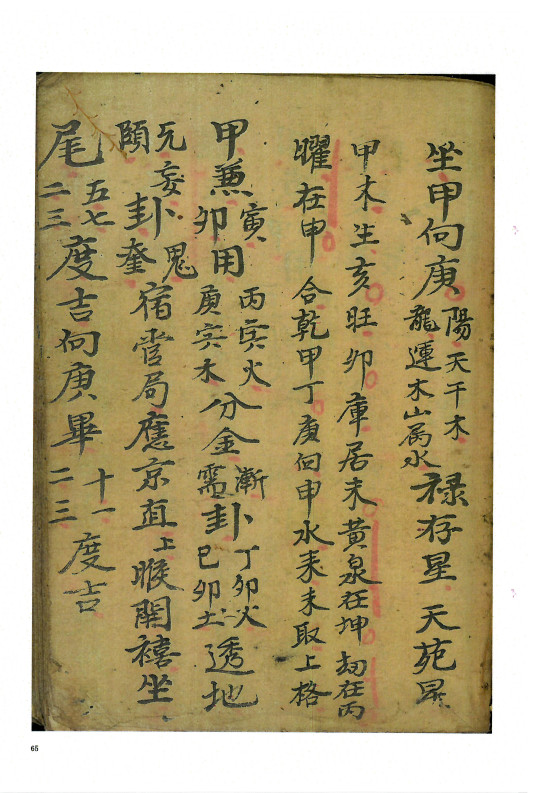 坐甲向庚 陽天干木 龍運木山属水 禄存星 天苑星
甲木生亥旺卯庫居未黄泉在坤劫在丙
曜在申 合乾甲丁庚向申水来未取上格
甲兼 寅 卯 用 丙寅火 庚寅木 分金 漸 需 卦 丁卯火 己卯土 透地
无妄 頤 卦 鬼 奎 宿管局應京直上 睺開禧坐
尾 五七 二三 度吉向庚畢 十一 二三 度吉
65